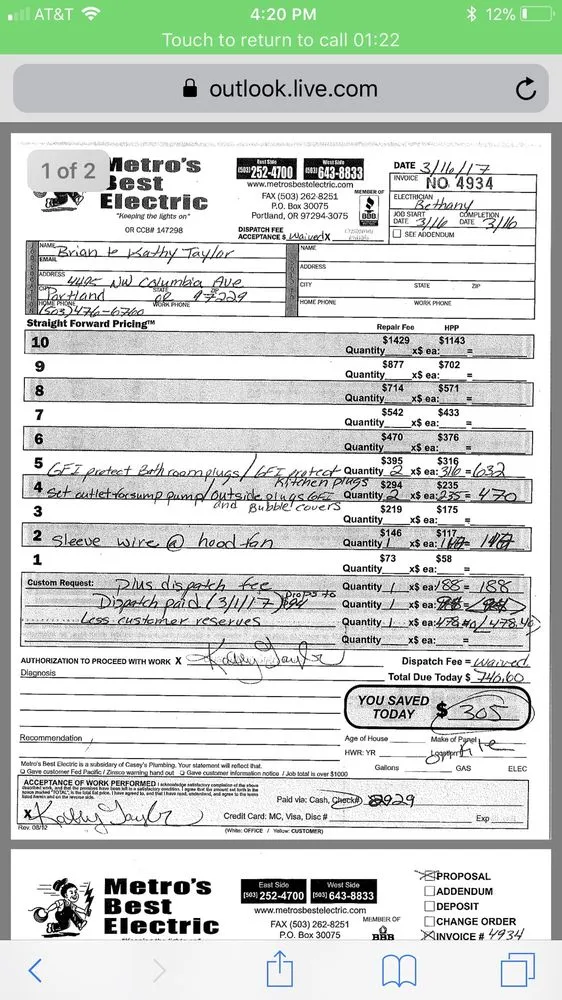 AT&T 4:20 PM 12%
Touch to return to call 01:22
outlook.live.com
1 of 2
Metro's
Best
Electric
"Keeping the lights on"
OR CCB# 147298
East Side West Side
(503) 252-4700 (503) 643-8833
www.metrosbestelectric.com
FAX (503) 262-8251
P.O. Box 30075
Portland, OR 97294-3075
MEMBER OF
BBB
DISPATCH FEE
ACCEPTANCE $ Waived X
DATE 3/16/17
INVOICE NO. 4934
ELECTRICIAN
Bethany
JOB START DATE 3/16 COMPLETION DATE 3/16
SEE ADDENDUM
NAME Brian & Kathy Taylor
EMAIL
ADDRESS
4495 NW Columbia Ave
CITY STATE ZIP
Portland OR 97229
HOME PHONE WORK PHONE
(503) 476-6760
NAME
ADDRESS
CITY STATE ZIP
HOME PHONE WORK PHONE
Straight Forward Pricing™
Repair Fee HPP
10 $1429 $1143
Quantity x$ ea: =
9 $877 $702
Quantity x$ ea: =
8 $714 $571
Quantity x$ ea: =
7 $542 $433
Quantity x$ ea: =
6 $470 $376
Quantity x$ ea: =
5 GFI protect Bathroom plugs / GFI protect Kitchen plugs $395 $316
Quantity 2 x$ ea: 316 = 632
4 Set outlet for sump pump / outside plugs GFI and Bubble covers $294 $235
Quantity 2 x$ ea: 235 = 470
3 $219 $175
Quantity x$ ea: =
2 Sleeve wire @ hood fan $146 $117
Quantity 1 x$ ea:
1 $73 $58
Quantity x$ ea: =
Custom Request: Plus dispatch fee Quantity 1 x$ ea: 188 = 188
Dispatch paid (3/1/17) Drops to $94 Quantity 1 x$ ea:
Less customer reserves Quantity 1 x$ ea: 478.40
Quantity x$ ea: =
AUTHORIZATION TO PROCEED WITH WORK X Kathy Taylor
Dispatch Fee = waived
Diagnosis
Total Due Today $ 740.60
YOU SAVED
TODAY $ 305
Recommendation
Age of House Make of Panel
HWR: YR Location
Gallons GAS ELEC
Metro's Best Electric is a subsidiary of Casey's Plumbing. Your statement will reflect that.
Gave customer Fed Pacific / Zinsco warning hand out Gave customer information notice / Job total is over $1000
ACCEPTANCE OF WORK PERFORMED
X Kathy Taylor
Paid via: Cash, Check# 2929
Credit Card: MC, Visa, Disc # Exp
Rev. 08/12
(White: OFFICE / Yellow: CUSTOMER)
Metro's
Best
Electric
East Side West Side
(503) 252-4700 (503) 643-8833
www.metrosbestelectric.com
FAX (503) 262-8251
P.O. Box 30075
MEMBER OF
BBB
PROPOSAL
ADDENDUM
DEPOSIT
CHANGE ORDER
INVOICE # 4934